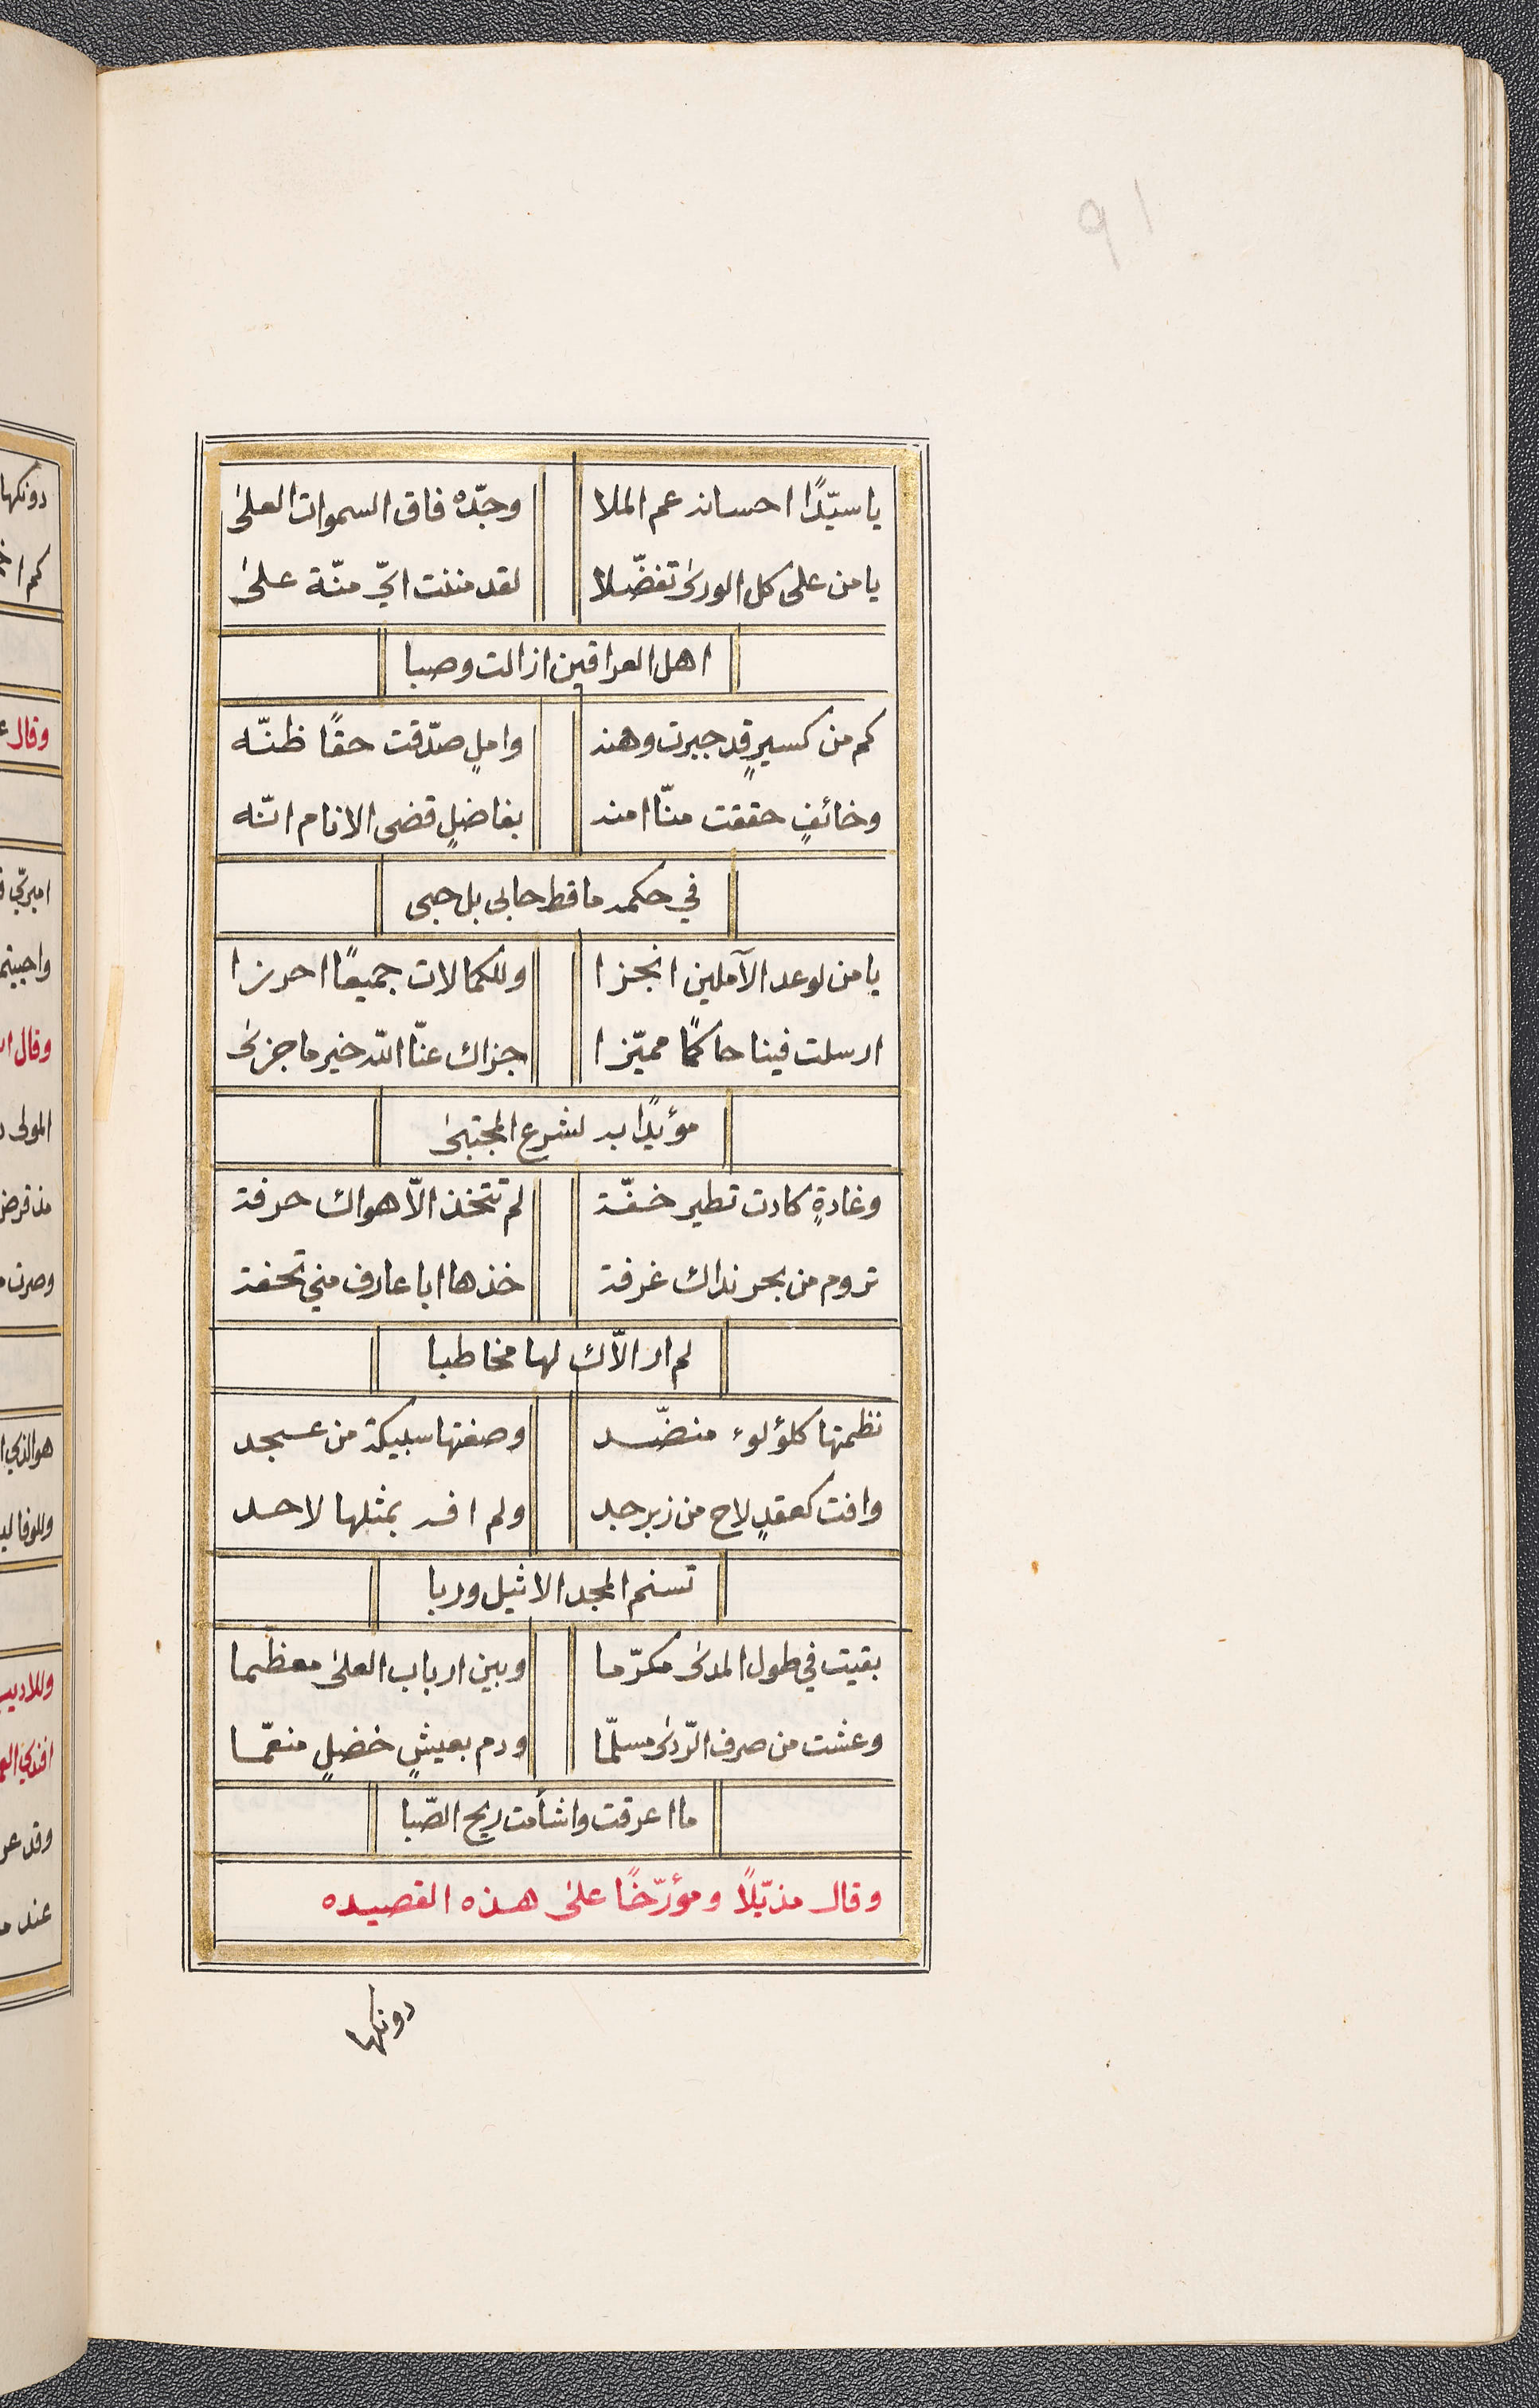 ٩١
يا سيّدًا احسانه عم الملا وجدّه فاق السموات العلىٰ
يا من على كل الورىٰ تفضّلا لقد مننت ايّ منّة علىٰ
اهل العراقين ازالت وصبا
كم من كسيرٍ قد جبرت وهنه واملٍ صدّقت حقًا ظنّه
وخائفٍ حققت منّا امنه بفاضلٍ قضى الانام انّه
في حكمه ما قط حابى بل حبى
يا من لوعد الآملين انجزا وللكمالات جميعًا احرزا
ارسلت فينا حاكمًا مميّزا جزاك عنّا الله خير ما جزىٰ
مؤيدًا به لشرع المجتبىٰ
وغادةٍ كادت تطير خفّة لم تتخذ الّا هواك حرفة
تروم من بحر نداك غرفة خذها ابا عارف مني تحفة
لم ار الّاك لها مخاطبا
نظمتها كلؤلوء منضّد وصغتها سبيكة من عسجد
وافت كعقدٍ لاح من زبرجد ولم افه بمثلها لاحد
تسنم المجد الاثيل وربا
بقيت في طول المدىٰ مكرّما وبين ارباب العلىٰ معظّما
وعشت من صرف الرّدىٰ مسلّما ودم بعيشٍ خضلٍ منعّما
ما اعرقت واشأمت ريح الصّبا
وقال مذيّلًا ومؤرّخًا علىٰ هذه القصيده
دونكها